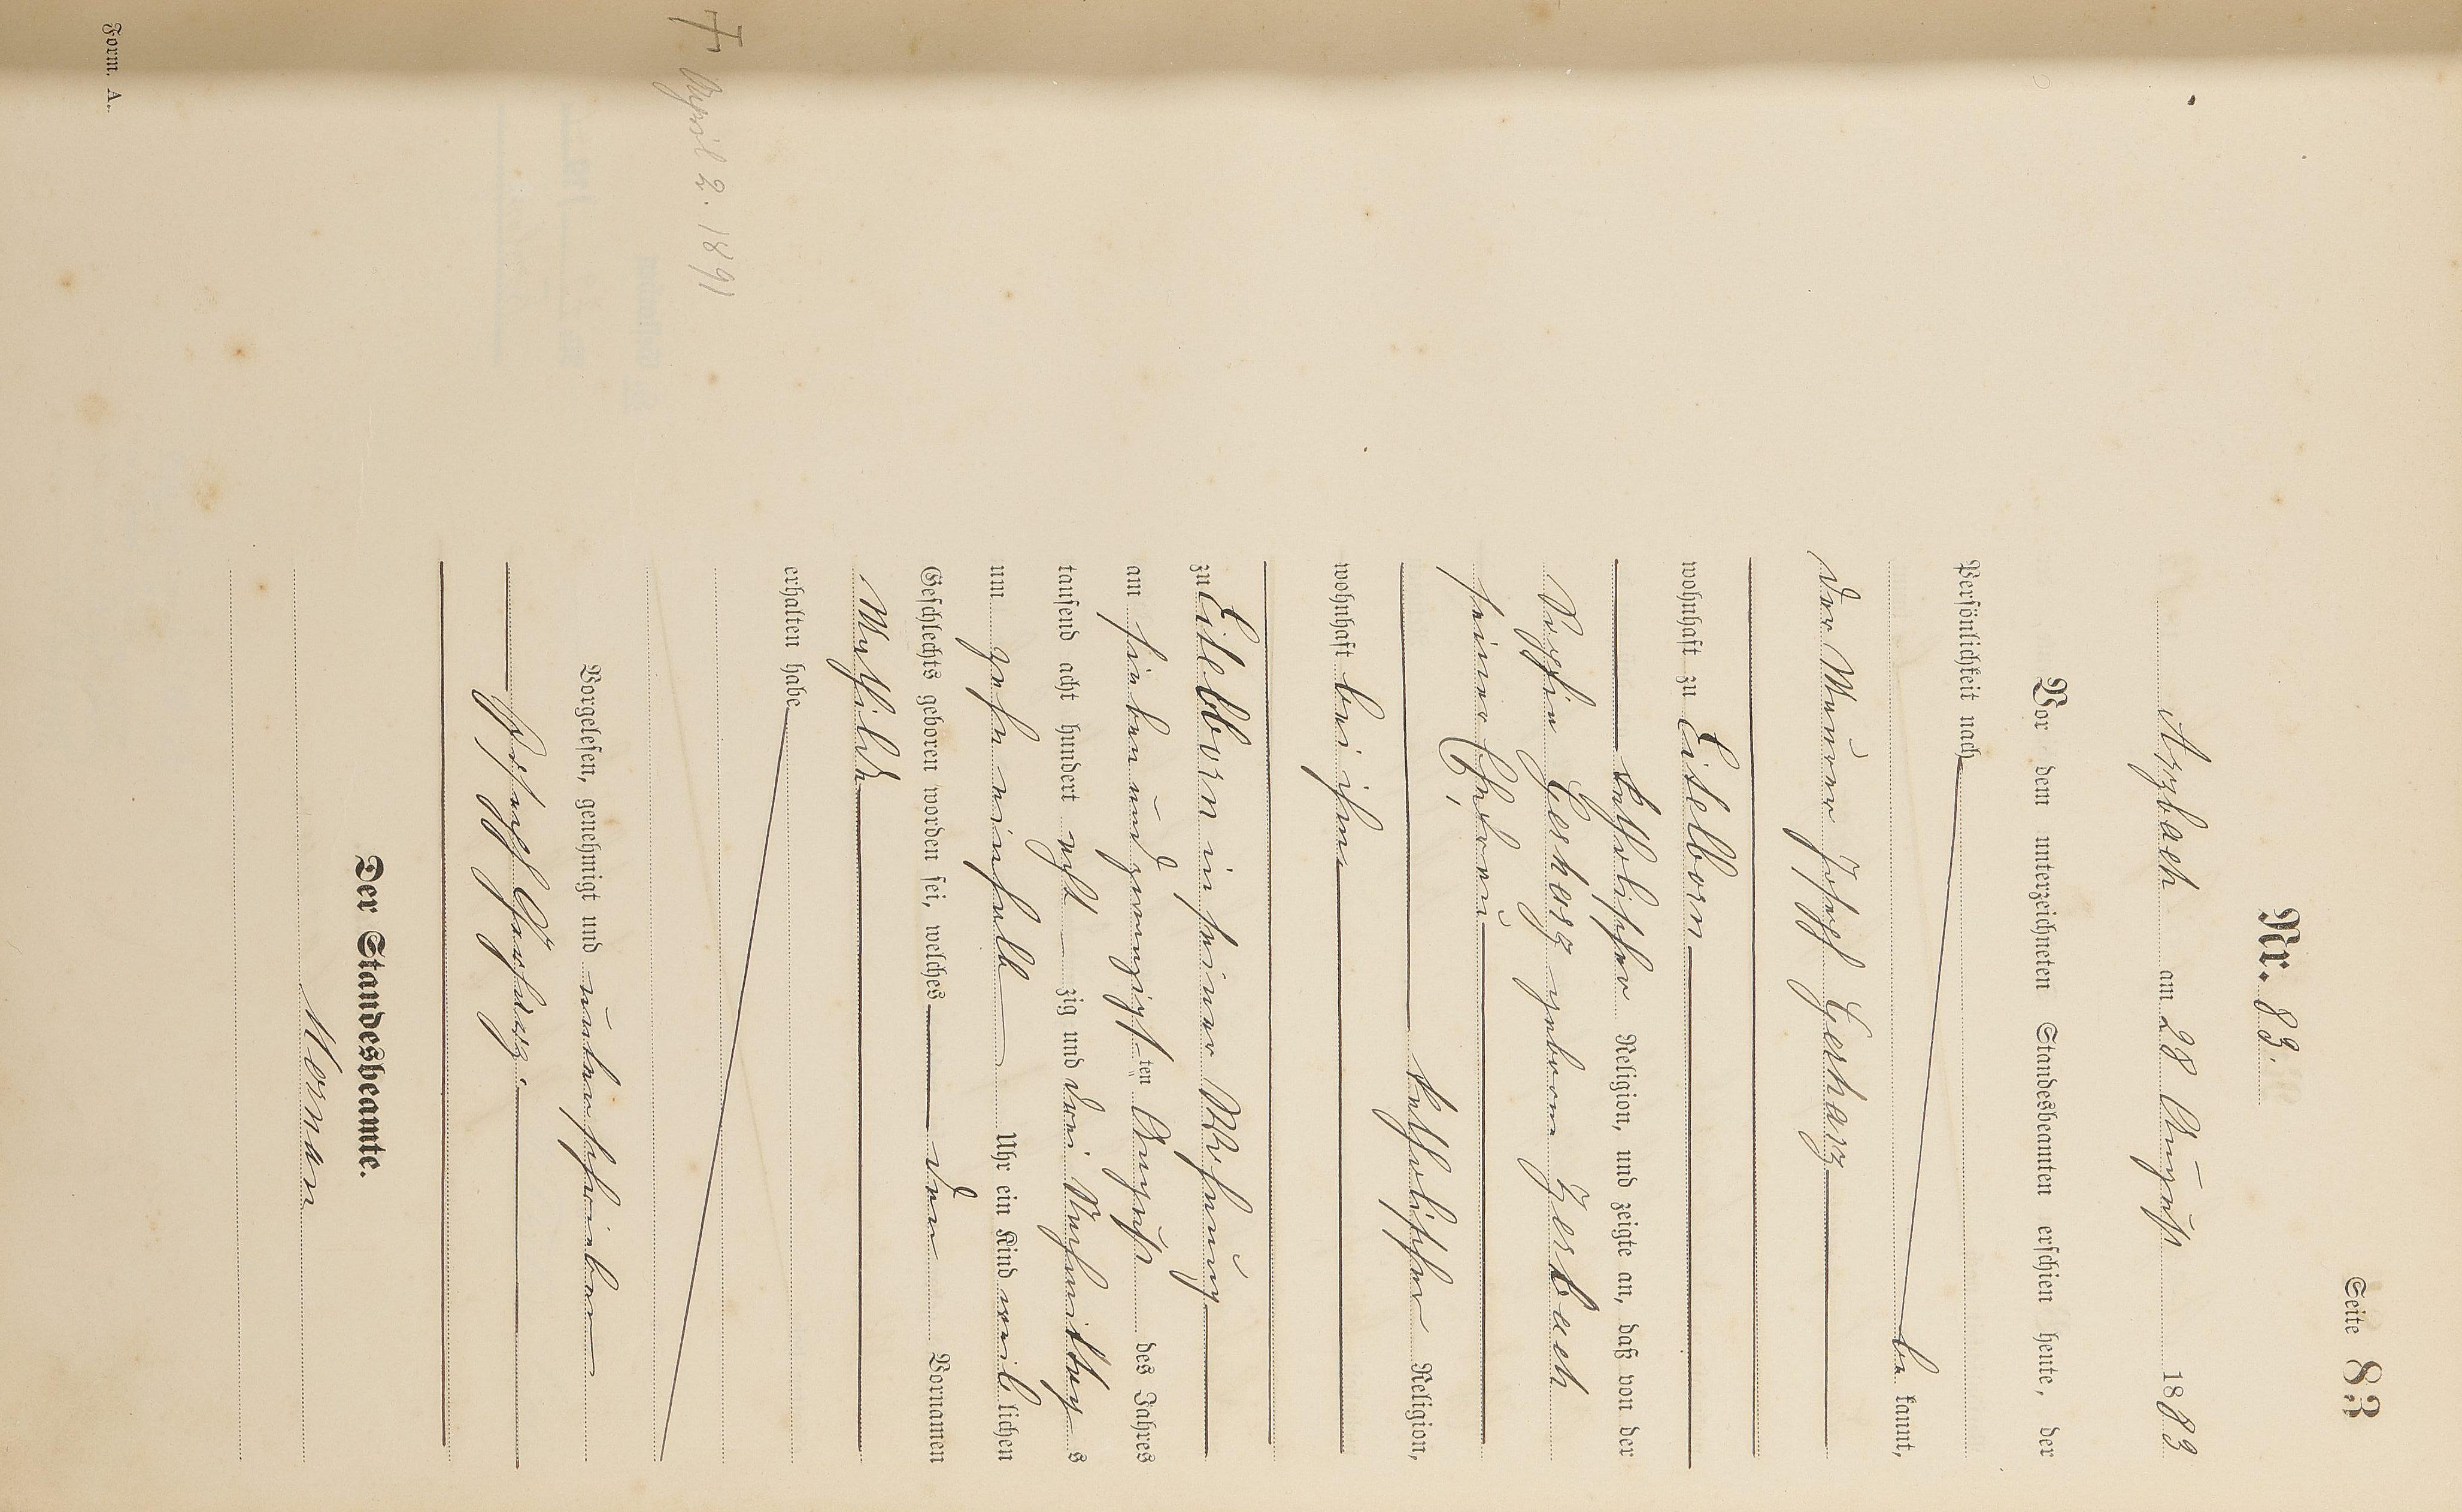 Seite 83
Nr. 83.
Arzbach am 28 August 1883
Vor dem unterzeichneten Standesbeamten erschien heute, der
Persönlichkeit nach
be kannt,
der Maurer Josef Gerharz
wohnhaft zu Eitelborn
katholischer Religion, und zeigte an, daß von der
Gerharz geborne Herbach
seiner Ehefrau
katholischer Religion,
wohnhaft bei ihm
zu Eitelborn in seiner Wohnung
am sieben und zwanzigsten August des Jahres
tausend acht hundert acht zig und drei Nachmittag s
um zehn einhalb Uhr ein Kind weib lichen
Geschlechts geboren worden sei, welches den Vornamen
Mathilde
erhalten habe
Vorgelesen, genehmigt und unterschrieben
Joseph Gerharz.
Der Standesbeamte.
Form. A.
† April 2. 1891